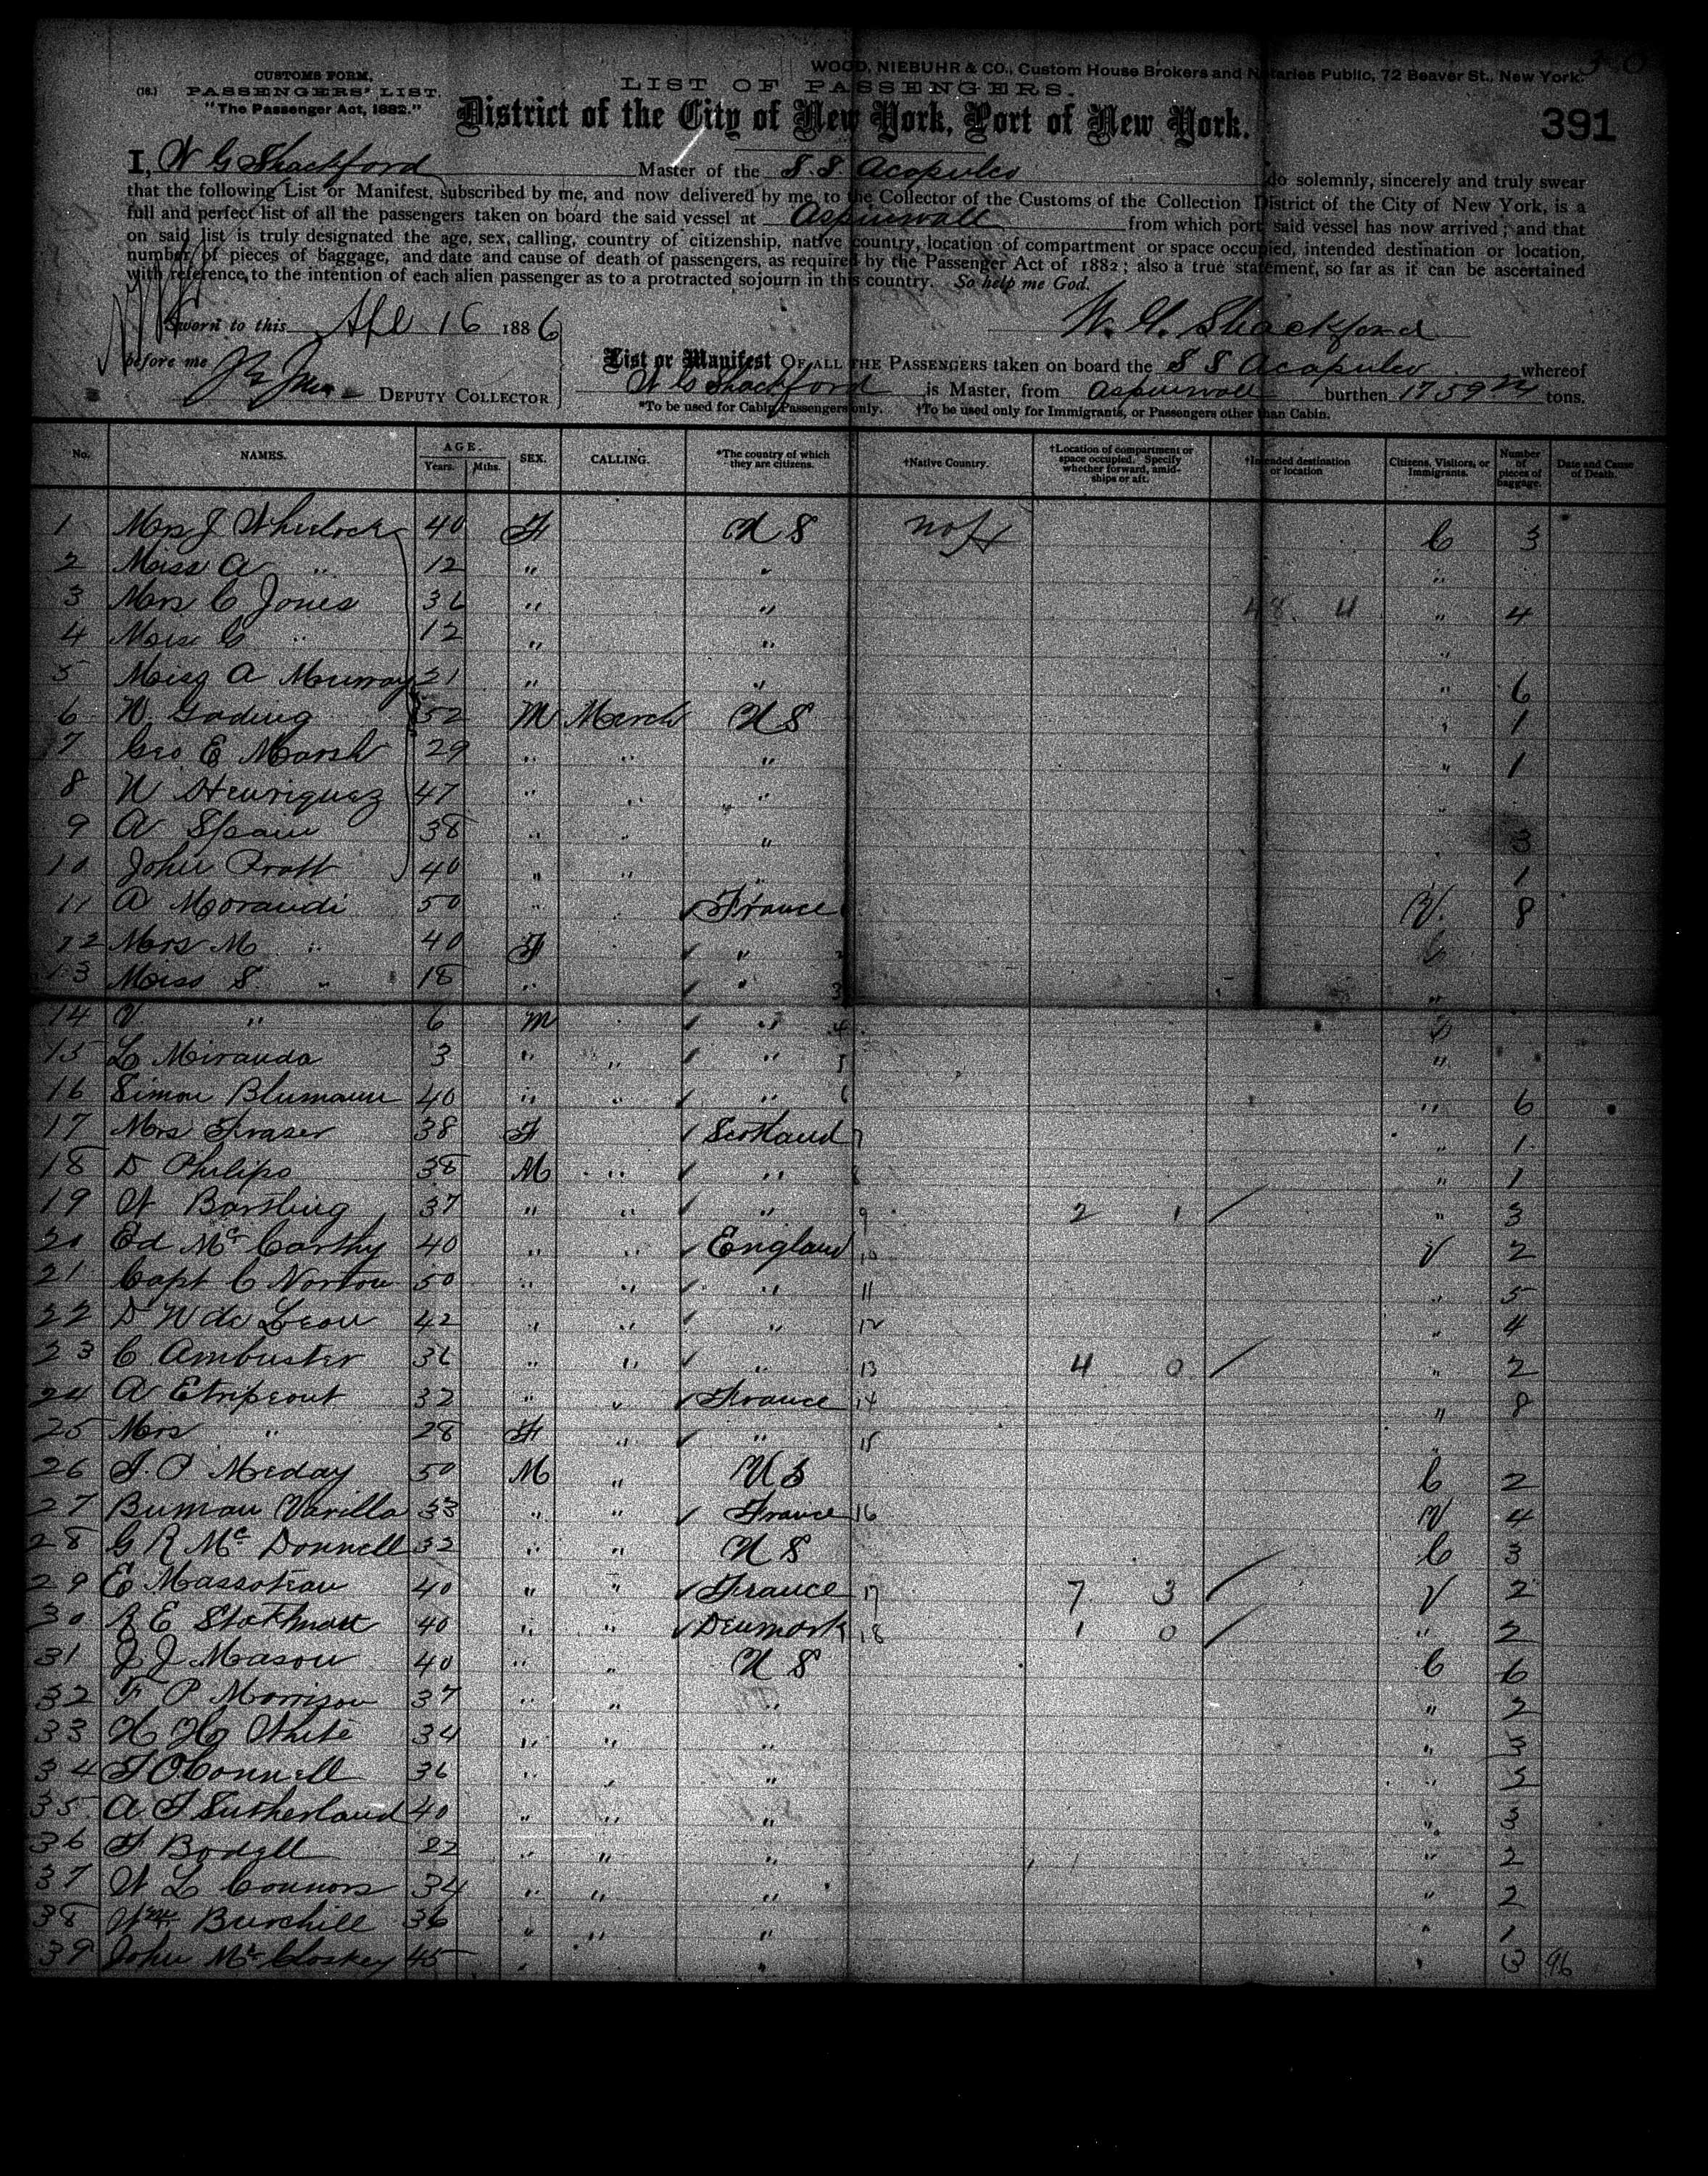 WOOD, NIEBUHR & CO., Custom House Brokers and Notaries Public, 72 Beaver St., New York.
CUSTOMS FORM.
(16.) PASSENGERS' LIST.
"The Passenger Act, 1882."
LIST OF PASSENGERS.
District of the City of New York, Port of New York.
391
I, W G Shackford Master of the S. S. Acapulco do solemnly, sincerely and truly swear
that the following List or Manifest, subscribed by me, and now delivered by me to the Collector of the Customs of the Collection District of the City of New York, is a
full and perfect list of all the passengers taken on board the said vessel at Aspinwall from which port said vessel has now arrived; and that
on said list is truly designated the age, sex, calling, country of citizenship, native country, location of compartment or space occupied, intended destination or location,
number of pieces of baggage, and date and cause of death of passengers, as required by the Passenger Act of 1882; also a true statement, so far as it can be ascertained
with reference to the intention of each alien passenger as to a protracted sojourn in this country. So help me God.
Sworn to this Apl 16 1886
W. G. Shackford
before me
DEPUTY COLLECTOR
List or Manifest OF ALL THE PASSENGERS taken on board the S S Acapulco whereof
W G Shackford is Master, from Aspinwall burthen 1759 tons.
*To be used for Cabin Passengers only. †To be used only for Immigrants, or Passengers other than Cabin.
No. NAMES. AGE. Years. Mths. SEX. CALLING. *The country of which they are citizens. †Native Country. †Location of compartment or space occupied. Specify whether forward, amidships or aft. †Intended destination or location Citizens, Visitors, or Immigrants. Number of pieces of baggage. Date and Cause of Death.
1 Mrs J Wheelock 40 F U S C 3
2 Miss A " 12 " " "
3 Mrs C Jones 36 " " " 4
4 Miss C " 12 " " "
5 Miss A Murray 21 " " " 6
6 W Goding 52 M Merch U S " 1
7 Geo E Marsh 29 " " " " 1
8 W Henriquez 47 " " " "
9 A Spain 38 " " " " 3
10 John Pratt 40 " " " " 1
11 A Morandi 50 " " France V 8
12 Mrs M " 40 F " 2
13 Miss S " 18 " " 3 "
14 V " 6 M " 4
15 L Miranda 3 " " " 5 "
16 Simon Blumann 40 " " " 6 " 6
17 Mrs Fraser 38 F Scotland 7 " 1
18 D Philips 38 M " " 8 " 1
19 W Bartling 37 " " " 9 2 1 " 3
20 Ed McCarthy 40 " " England 10 V 2
21 Capt C Norton 50 " " " 11 " 5
22 D W de Leon 42 " " " 12 " 4
23 C Ambuster 36 " " " 13 4 0 " 2
24 A Etripeout 32 " " France 14 " 8
25 Mrs " 28 F " " 15 "
26 J. P Meday 50 M " U S C 2
27 Buman Varilla 33 " " France 16 V 4
28 G R McDonnell 32 " " U S C 3
29 E Massoteau 40 " " France 17 7 3 V 2
30 R E Stothmatt 40 " " Denmark 18 1 0 " 2
31 J J Mason 40 " " U S C 6
32 F P Morrison 37 " " " " 2
33 H Hg White 34 " " " " 3
34 J OConnell 36 " " " "
35 A J Sutherland 40 " " " " 3
36 F Bodell 22 " " " 2
37 W L Connors 34 " " " " 2
38 Wm Burchill 36 " " " " 1
39 John McCloskey 45 " " " 3 96